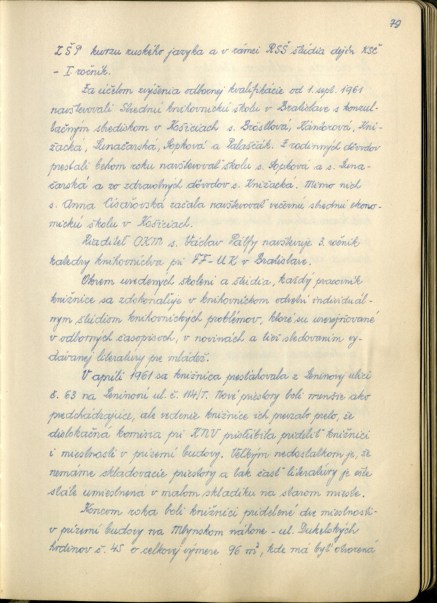 79
IŠP kurzu ruského jazyka a v rámci RSŠ štúdia dejín KSČ
- I. ročník.
Za účelom zvýšenia odbornej kvalifikácie od 1. sept. 1961
navštevovali Strednú knihovnícku školu v Bratislave s konzul-
tačným strediskom v Košiciach s. Kni-
žacká, Lenačarská, Sopková a Palaščák. Z rodinných dôvodov
prestali behom roku navštevovať školu s. Sopková a s. Lena-
čarská a zo zdravotných dôvodov s. Knižacká. Mimo nich
s. Anna Cisarovská začala navštevovať večernú strednú ekono-
mickú školu v Košiciach.
Riaditeľ OKM s. Václav Pálfy navštevuje 3. ročník
katedry knihovníctva pri FF-UK v Bratislave.
Okrem uvedených školení a štúdia, každý pracovník
knižnice sa zdokonaľuje v knihovníckom odvetví individuál-
nym štúdiom knihovníckych problémov, ktoré sú uverejňované
v odborných časopisoch, v novinách a tiež sledovaním vy-
dávanej literatúry pre mládež.
V apríli 1961 sa knižnica presťahovala z Leninovej ulici
č. 63 na Leninovu ul. č. 114/I. Nové priestory boli menšie ako
predchádzajúce, ale vedenie knižnice ich prevzalo preto, že
dislokačná komisia pri KNV prisľúbila prideliť knižnici
i miestnosti v prízemí budovy. Veľkým nedostatkom je, že
nemáme skladovacie priestory a tak časť literatúry je ešte
stále umiestnená v malom skladíku na starom mieste.
Koncom roka boli knižnici pridelené dve miestnosti
v prízemí budovy na Mlynskom náhone - ul. Dukelských
hrdinov č. 45 o celkovej výmere 96 m², kde má byť otvorená